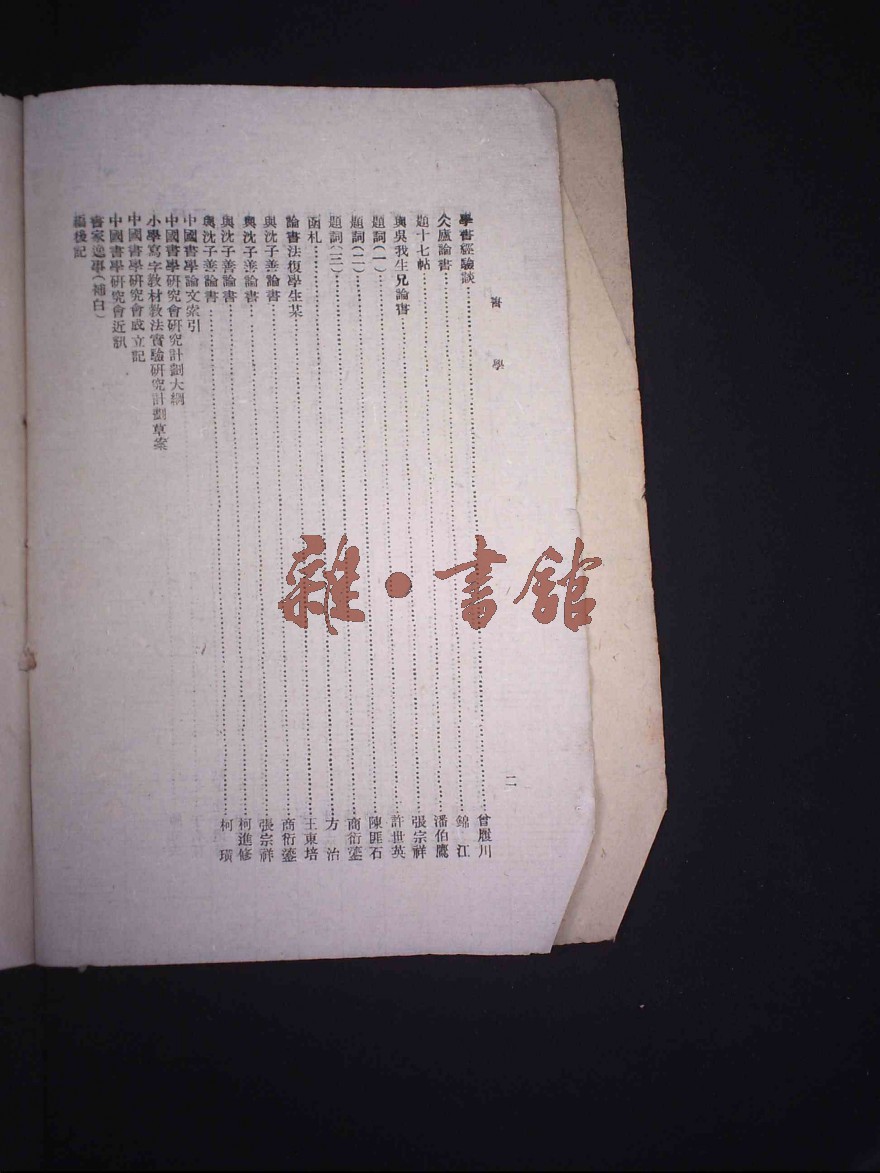 書學
二
學書經驗談……曾履川
久廬論書……錦江
題十七帖……潘伯鷹
與吳我生兄論書……張宗祥
題詞(一)……許世英
題詞(二)……陳匪石
題詞(三)……商衍鎏
函札……方治
論書法復學生某……王東培
與沈子善論書……商衍鎏
與沈子善論書……張宗祥
與沈子善論書……柯進修
與沈子善論書……柯璜
中國書學論文索引
中國書學研究會研究計劃大綱
小學寫字教材教法實驗研究計劃草案
中國書學研究會成立記
中國書學研究會近訊
書家逸事(補白)
編後記
雜·書館